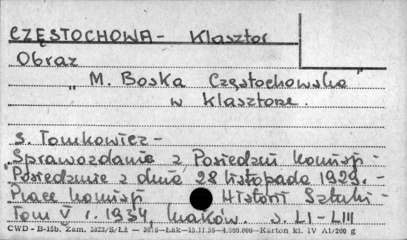 CZĘSTOCHOWA - Klasztor
Obraz
"M. Boska Częstochowska
w klasztorze.
S. Tomkowicz -
Sprawozdanie z Posiedzeń Komisji -
"Posiedzenie z dnia 28 listopada 1929. -
Prace Komisji Historii Sztuki -
Tom V r. 1934, Kraków. s. LI-LIII
CWD - B-15b. Zam. 5823/S/Lż - 3016 - Łak - 15.11.55 - 4.000.000 - Karton kl. IV A1/200 g